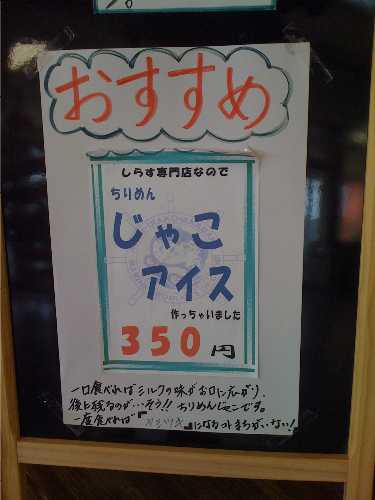 おすすめ
しらす専門店なので
ちりめん
じゃこ
アイス
作っちゃいました
350円
一口食べればミルクの味がお口に広がり、
後に残るのが…そう!! ちりめんじゃこです。
一度食べれば『』になることまちがいない!